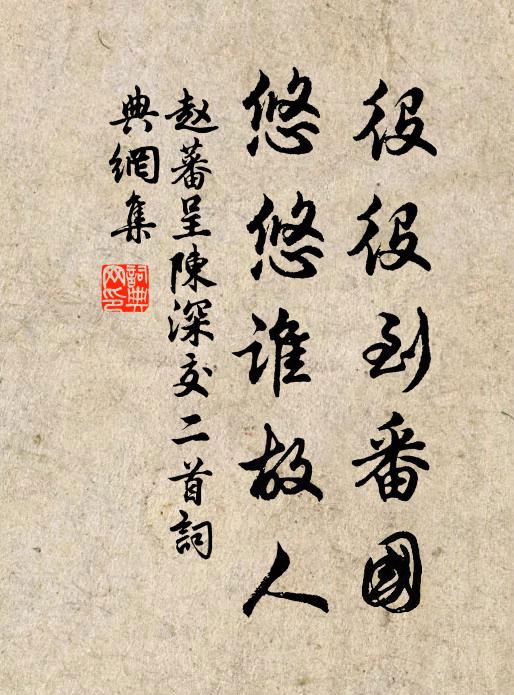 役役到番國
悠悠谁故人
赵蕃呈陳深交二首詞
典網集
詞典網印